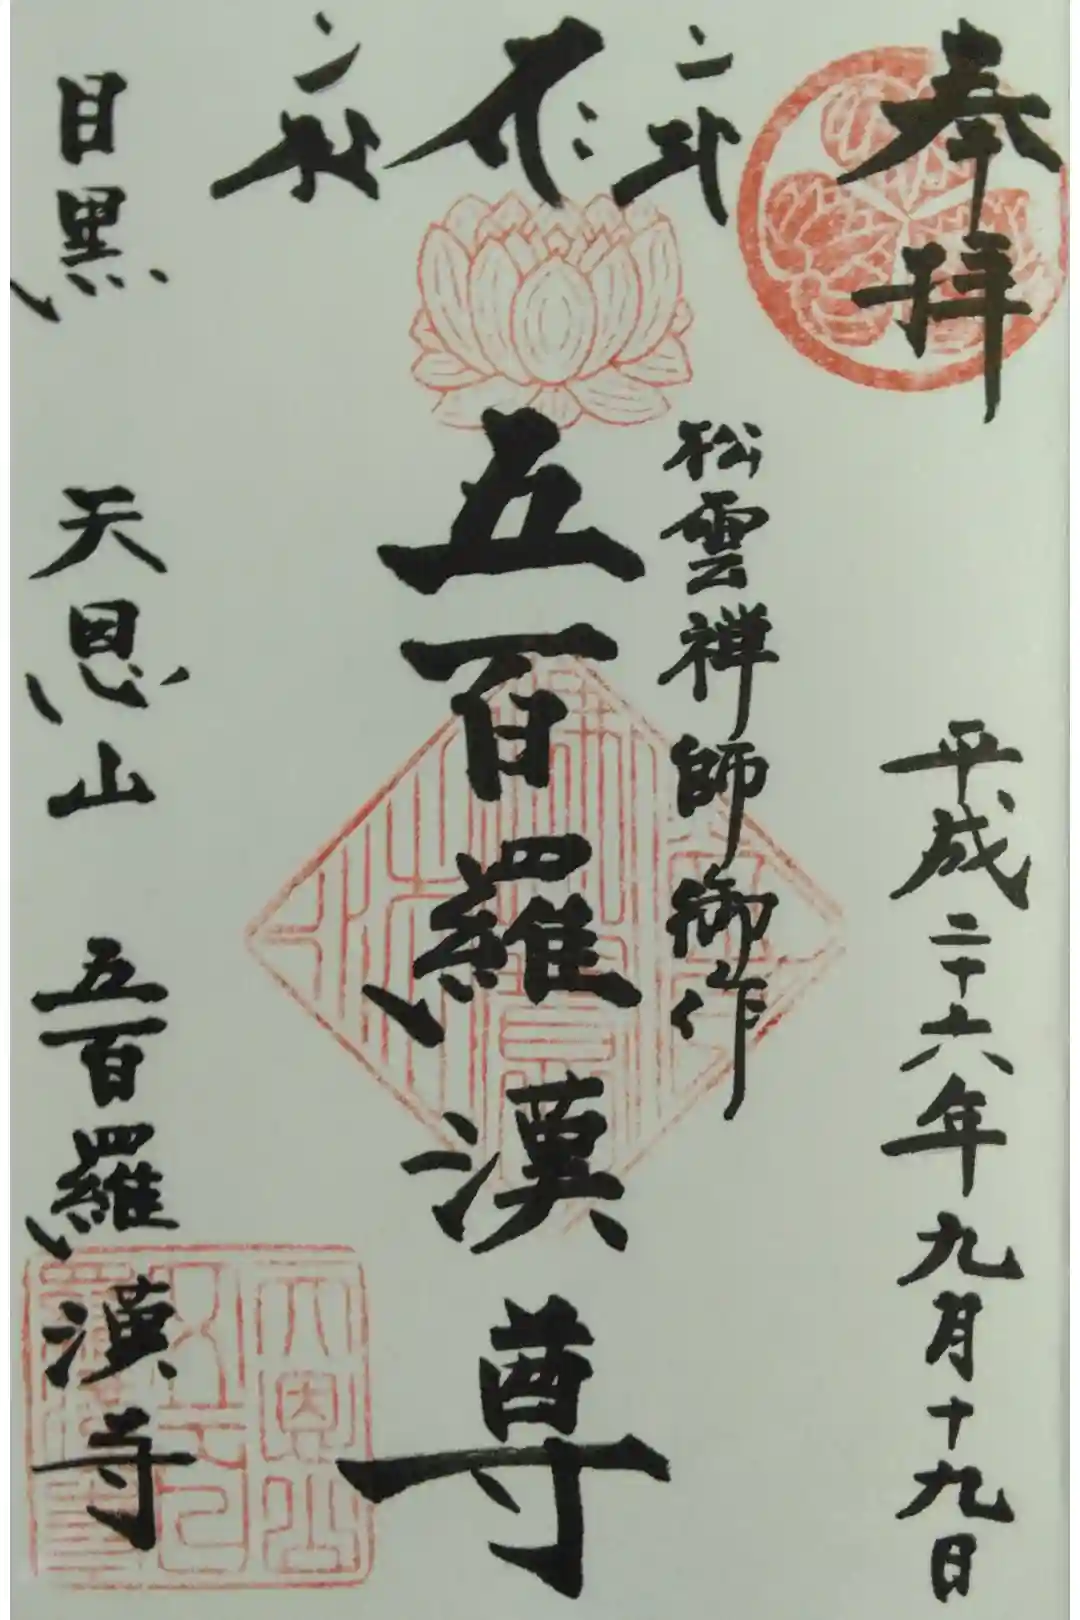 奉拝
平成二十六年九月十九日
松雲禅師御作
五百羅漢尊
目黒 天恩山 五百羅漢寺